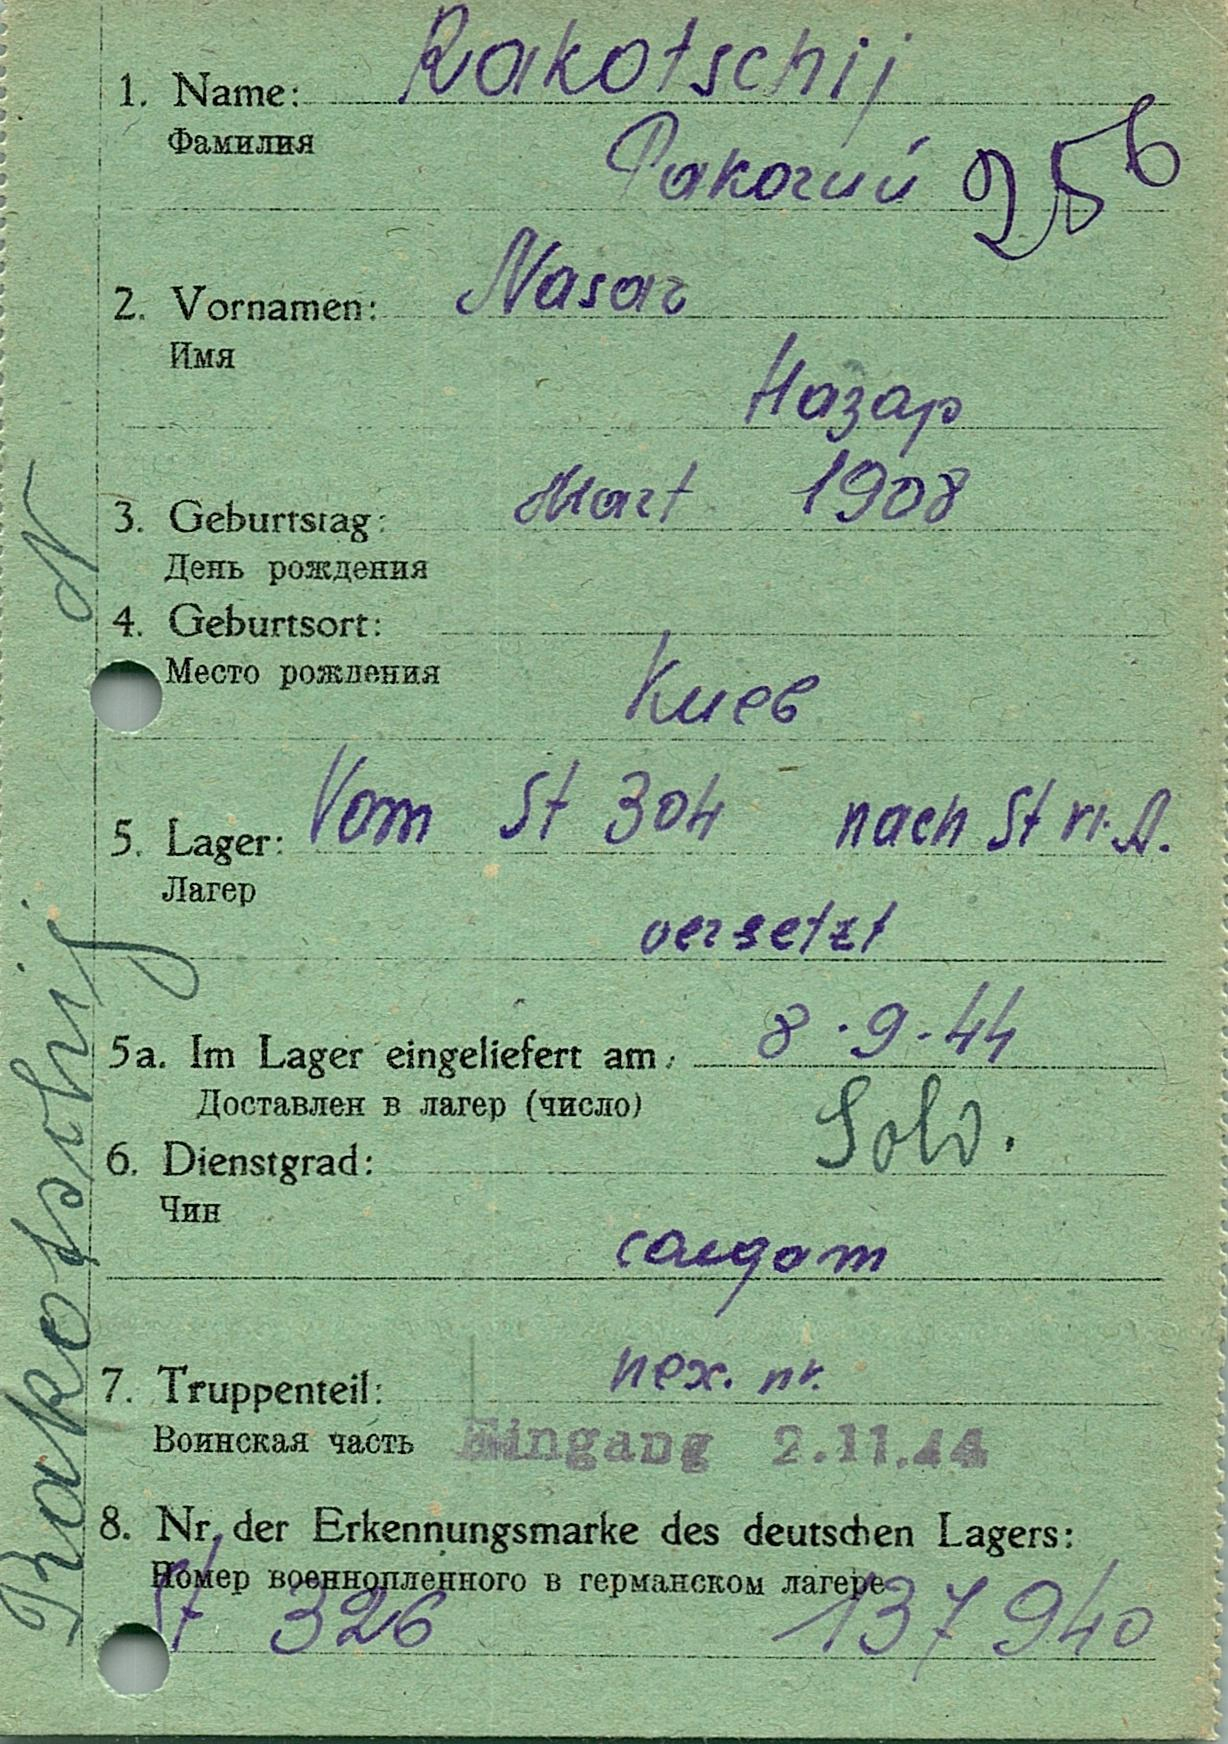 1. Name: Rakotschij
Фамилия
Ракочий 256
2. Vornamen: Nasar
Имя
Назар
3. Geburtstag: Mart 1908
День рождения
4. Geburtsort:
Место рождения
Киев
5. Lager: Vom St 304 nach St VI.A.
Лагер
versetzt
5a. Im Lager eingeliefert am: 8.9.44
Доставлен в лагер (число)
6. Dienstgrad: Sold.
Чин
салдат
7. Truppenteil:
Воинская часть
Eingang 2.11.44
8. Nr. der Erkennungsmarke des deutschen Lagers:
Номер военнопленного в германском лагере
St 326 137940
Rakotschij N